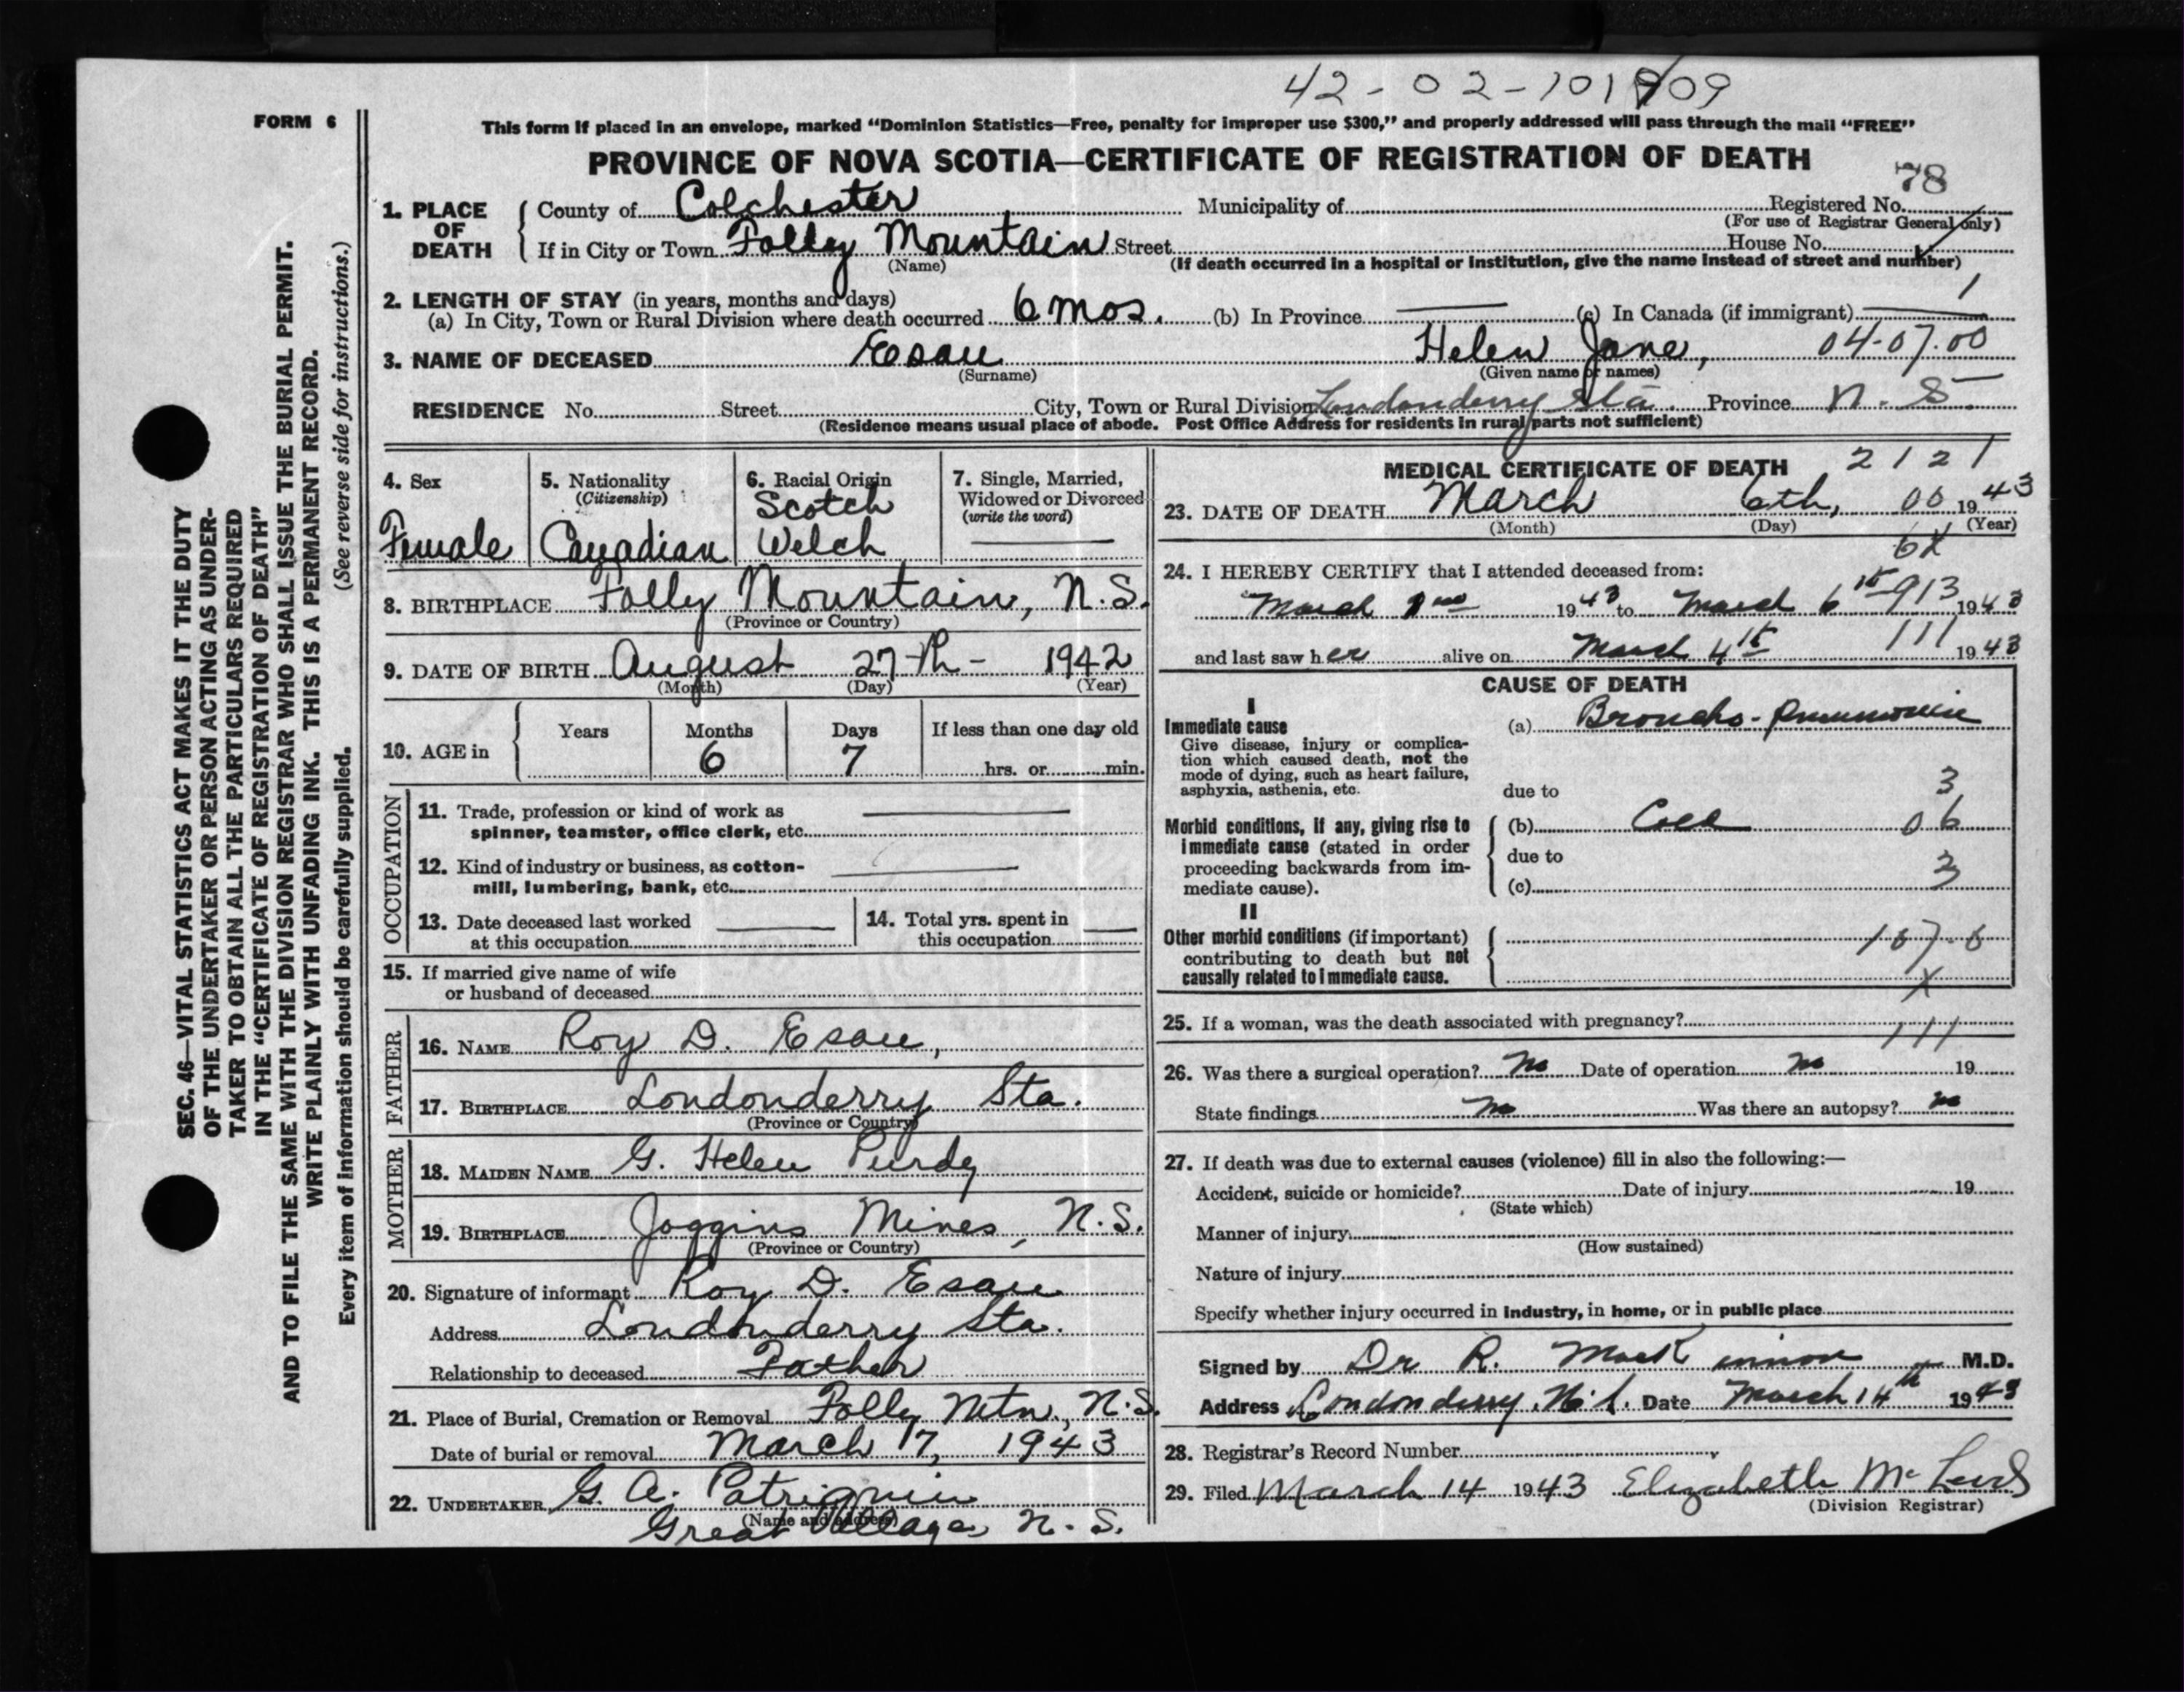 42-02-101909
FORM 6
This form if placed in an envelope, marked “Dominion Statistics—Free, penalty for improper use $300,” and properly addressed will pass through the mail “FREE”
PROVINCE OF NOVA SCOTIA—CERTIFICATE OF REGISTRATION OF DEATH
78
1. PLACE OF DEATH
County of Colchester Municipality of Registered No.
(For use of Registrar General only)
If in City or Town Folley Mountain Street House No.
(Name) (If death occurred in a hospital or institution, give the name instead of street and number)
2. LENGTH OF STAY (in years, months and days) 1
(a) In City, Town or Rural Division where death occurred 6 mos. (b) In Province — (c) In Canada (if immigrant) —
3. NAME OF DECEASED Esau Helen Jane, 04-07.00
(Surname) (Given name or names)
RESIDENCE No. Street City, Town or Rural Division Londonderry Sta. Province N.S.
(Residence means usual place of abode. Post Office Address for residents in rural parts not sufficient)
4. Sex
Female
5. Nationality
(Citizenship)
Canadian
6. Racial Origin
Scotch
Welch
7. Single, Married,
Widowed or Divorced
(write the word)
—
8. BIRTHPLACE Folly Mountain, N.S.
(Province or Country)
9. DATE OF BIRTH August 27th- 1942
(Month) (Day) (Year)
10. AGE in
Years Months Days If less than one day old
6 7 hrs. or min.
OCCUPATION
11. Trade, profession or kind of work as
spinner, teamster, office clerk, etc. —
12. Kind of industry or business, as cotton-
mill, lumbering, bank, etc. —
13. Date deceased last worked
at this occupation —
14. Total yrs. spent in
this occupation —
15. If married give name of wife
or husband of deceased
FATHER
16. NAME Roy D. Esau,
17. BIRTHPLACE Londonderry Sta.
(Province or Country)
MOTHER
18. MAIDEN NAME G. Helen Purdy
19. BIRTHPLACE Joggins Mines, N.S.
(Province or Country)
20. Signature of informant Roy D. Esau
Address Londonderry Sta.
Relationship to deceased Father
21. Place of Burial, Cremation or Removal Folly Mtn., N.S.
Date of burial or removal March 17, 1943
22. UNDERTAKER G. A. Patriquin
(Name and address)
Great Village, N.S.
MEDICAL CERTIFICATE OF DEATH 2121
23. DATE OF DEATH March 6th, 00 1943
(Month) (Day) (Year)
24. I HEREBY CERTIFY that I attended deceased from:
March 1943 to March 6th 913 1943
and last saw her alive on March 4th 111 1943
CAUSE OF DEATH
I
Immediate cause
Give disease, injury or complica-
tion which caused death, not the
mode of dying, such as heart failure,
asphyxia, asthenia, etc.
(a) Broncho-pneumonia
due to 3
Morbid conditions, if any, giving rise to
immediate cause (stated in order
proceeding backwards from im-
mediate cause).
(b) Cold 06
due to
(c) 3
II
Other morbid conditions (if important)
contributing to death but not
causally related to immediate cause.
107.0
X
25. If a woman, was the death associated with pregnancy?
111
26. Was there a surgical operation? No Date of operation No 19
State findings No Was there an autopsy? no
27. If death was due to external causes (violence) fill in also the following:—
Accident, suicide or homicide? Date of injury 19
(State which)
Manner of injury
(How sustained)
Nature of injury
Specify whether injury occurred in industry, in home, or in public place
Signed by Dr R. MacKinnon M.D.
Address Londonderry, N.S. Date March 14th 1943
28. Registrar's Record Number
29. Filed March 14 1943 Elizabeth McLeod
(Division Registrar)
SEC. 46—VITAL STATISTICS ACT MAKES IT THE DUTY
OF THE UNDERTAKER OR PERSON ACTING AS UNDER-
TAKER TO OBTAIN ALL THE PARTICULARS REQUIRED
IN THE “CERTIFICATE OF REGISTRATION OF DEATH”
AND TO FILE THE SAME WITH THE DIVISION REGISTRAR WHO SHALL ISSUE THE BURIAL PERMIT.
WRITE PLAINLY WITH UNFADING INK. THIS IS A PERMANENT RECORD.
Every item of information should be carefully supplied. (See reverse side for instructions.)